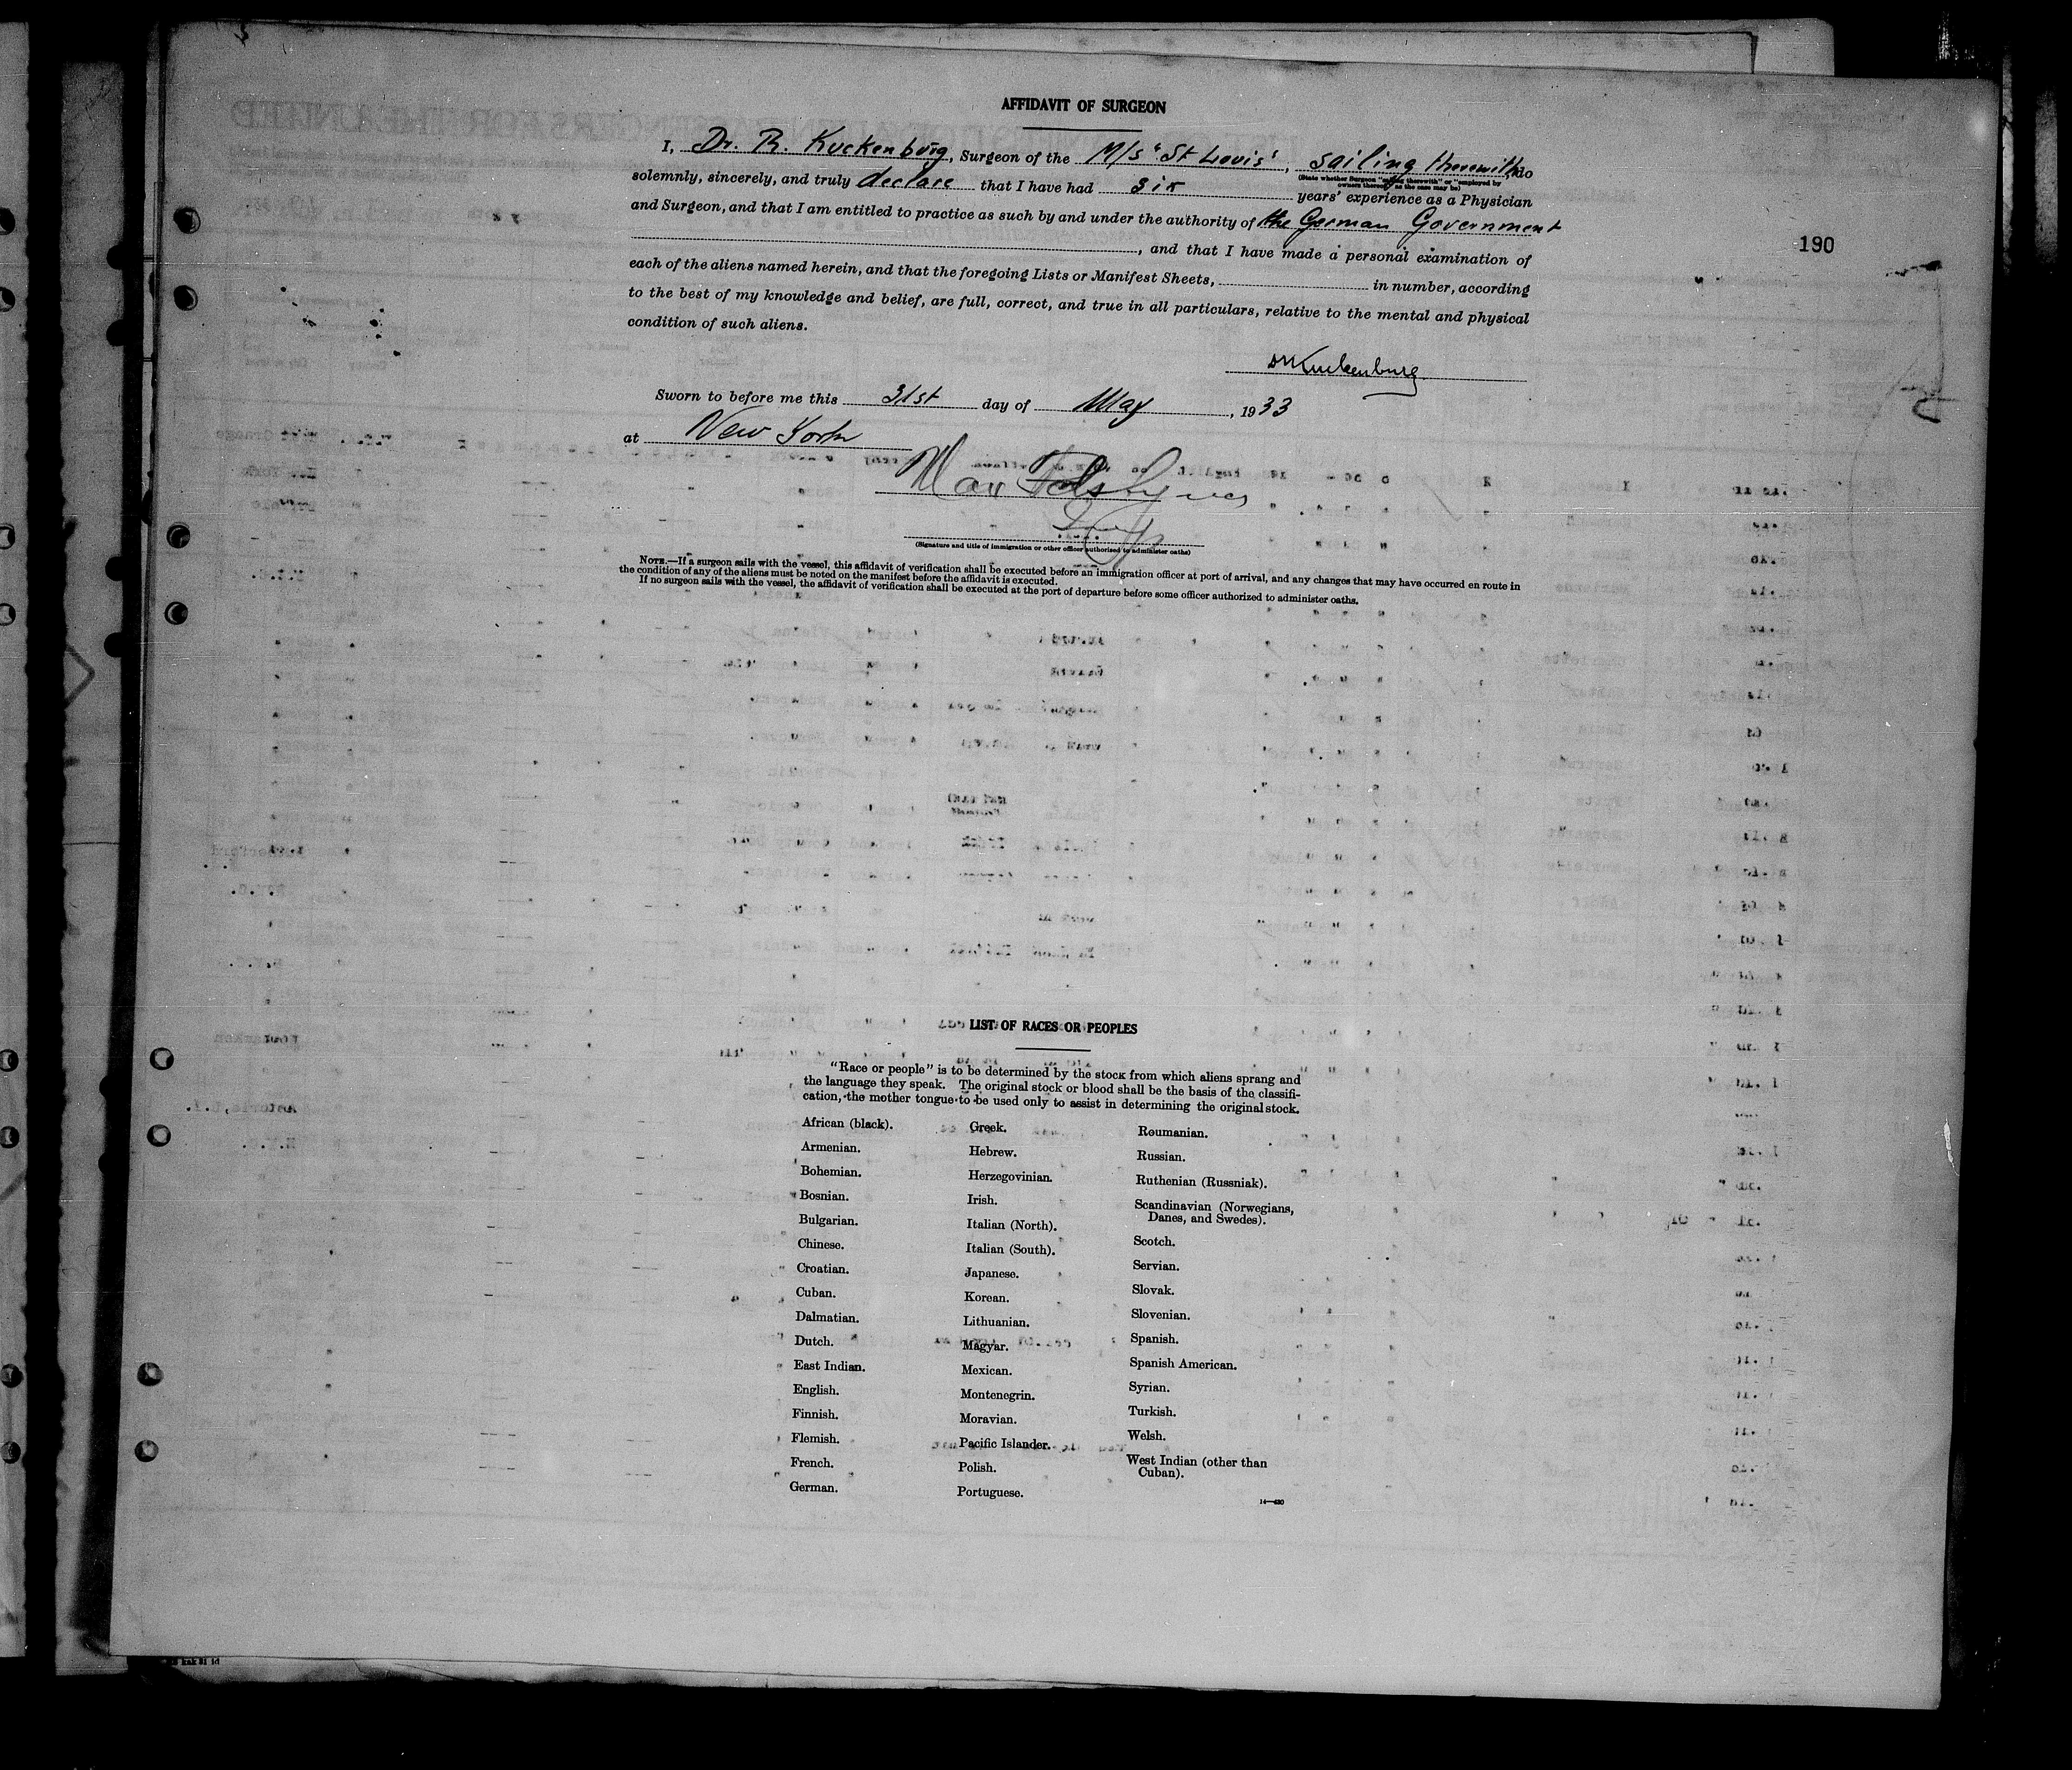 AFFIDAVIT OF SURGEON
I, Dr. R. Kuckenburg, Surgeon of the M/S "St Louis", sailing therewith, do
(State whether Surgeon "sailing therewith" or "employed by
owners thereof," as the case may be)
solemnly, sincerely, and truly declare that I have had six years' experience as a Physician
and Surgeon, and that I am entitled to practice as such by and under the authority of the German Government
, and that I have made a personal examination of
190
each of the aliens named herein, and that the foregoing Lists or Manifest Sheets, in number, according
to the best of my knowledge and belief, are full, correct, and true in all particulars, relative to the mental and physical
condition of such aliens.
Kuckenburg
Sworn to before me this 31st day of May, 1933
at New York
Max
(Signature and title of immigration or other officer authorized to administer oaths)
NOTE.—If a surgeon sails with the vessel, this affidavit of verification shall be executed before an immigration officer at port of arrival, and any changes that may have occurred en route in
the condition of any of the aliens must be noted on the manifest before the affidavit is executed.
If no surgeon sails with the vessel, the affidavit of verification shall be executed at the port of departure before some officer authorized to administer oaths.
LIST OF RACES OR PEOPLES
"Race or people" is to be determined by the stock from which aliens sprang and
the language they speak. The original stock or blood shall be the basis of the classifi-
cation, the mother tongue to be used only to assist in determining the original stock.
African (black).
Armenian.
Bohemian.
Bosnian.
Bulgarian.
Chinese.
Croatian.
Cuban.
Dalmatian.
Dutch.
East Indian.
English.
Finnish.
Flemish.
French.
German.
Greek.
Hebrew.
Herzegovinian.
Irish.
Italian (North).
Italian (South).
Japanese.
Korean.
Lithuanian.
Magyar.
Mexican.
Montenegrin.
Moravian.
Pacific Islander.
Polish.
Portuguese.
Roumanian.
Russian.
Ruthenian (Russniak).
Scandinavian (Norwegians,
Danes, and Swedes).
Scotch.
Servian.
Slovak.
Slovenian.
Spanish.
Spanish American.
Syrian.
Turkish.
Welsh.
West Indian (other than
Cuban).